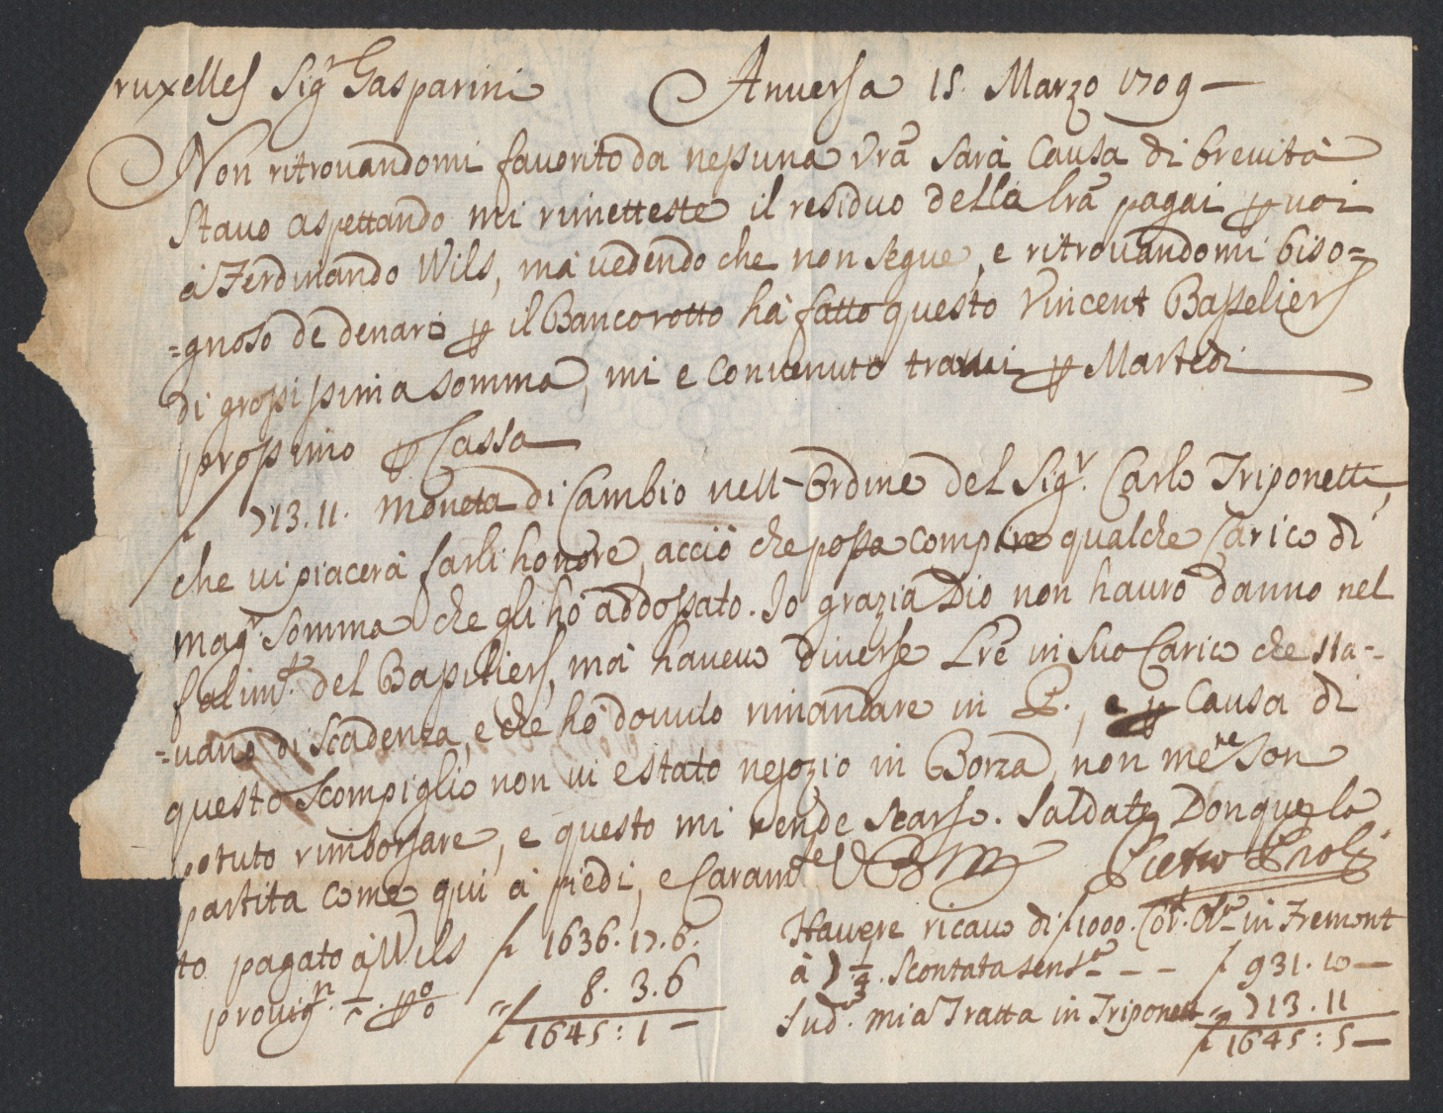 ruxelles Sigr Gasparini Anversa 15. Marzo 1709 —
Non ritrovandomi favorito da nessuna vrã sarà Causa di brevità
stavo aspettando mi rimetteste il residuo della lrã pagai ꝑ voi
à Ferdinando Wils, mà vedendo che non segue, e ritrovandomi biso=
=gnoso de denari ꝑ il Bancorotto hà fatto questo Vincent Basseliers
di grossissima somma, mi e convenuto trarvi ꝑ Martedi
prossimo ꝑ Cassa
f 713.11. moneta di Cambio nell'Ordine del Sigr. Carlo Triponetti,
che vi piacerà farli honore, acciò che possa compire qualche Carico di
magr. somma che gli hò addossato. Io grazia Dio non havrò danno nel
falimto. del Basseliers, mà havevo diverse Lrẽ in suo Carico che sta=
=vano di scadenza, e che hò dovuto rimandare in P., e ꝑ Causa di
questo scompiglio non vi e stato negozio in Borza, non me ne son
potuto rimborsare, e questo mi rende scarso. Saldate Donque la
partita come qui à piedi, e Caramte VBM Pietro Proli
to pagato à Wils f 1636.17.6.
provign. ꝑ% 8.3.6
f 1645:1 —
Havere ricavo di f 1000. Cor. in Fremont
à 7 ¾ scontata f 931.10 —
Sud. mia Tratta in Triponetti 713.11
f 1645:5 —